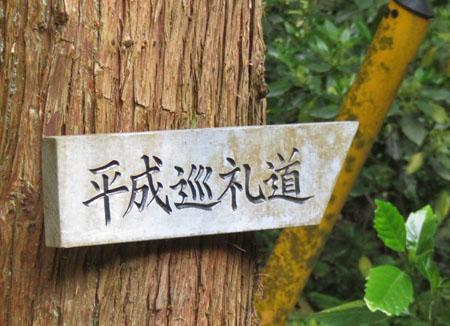 平成巡礼道